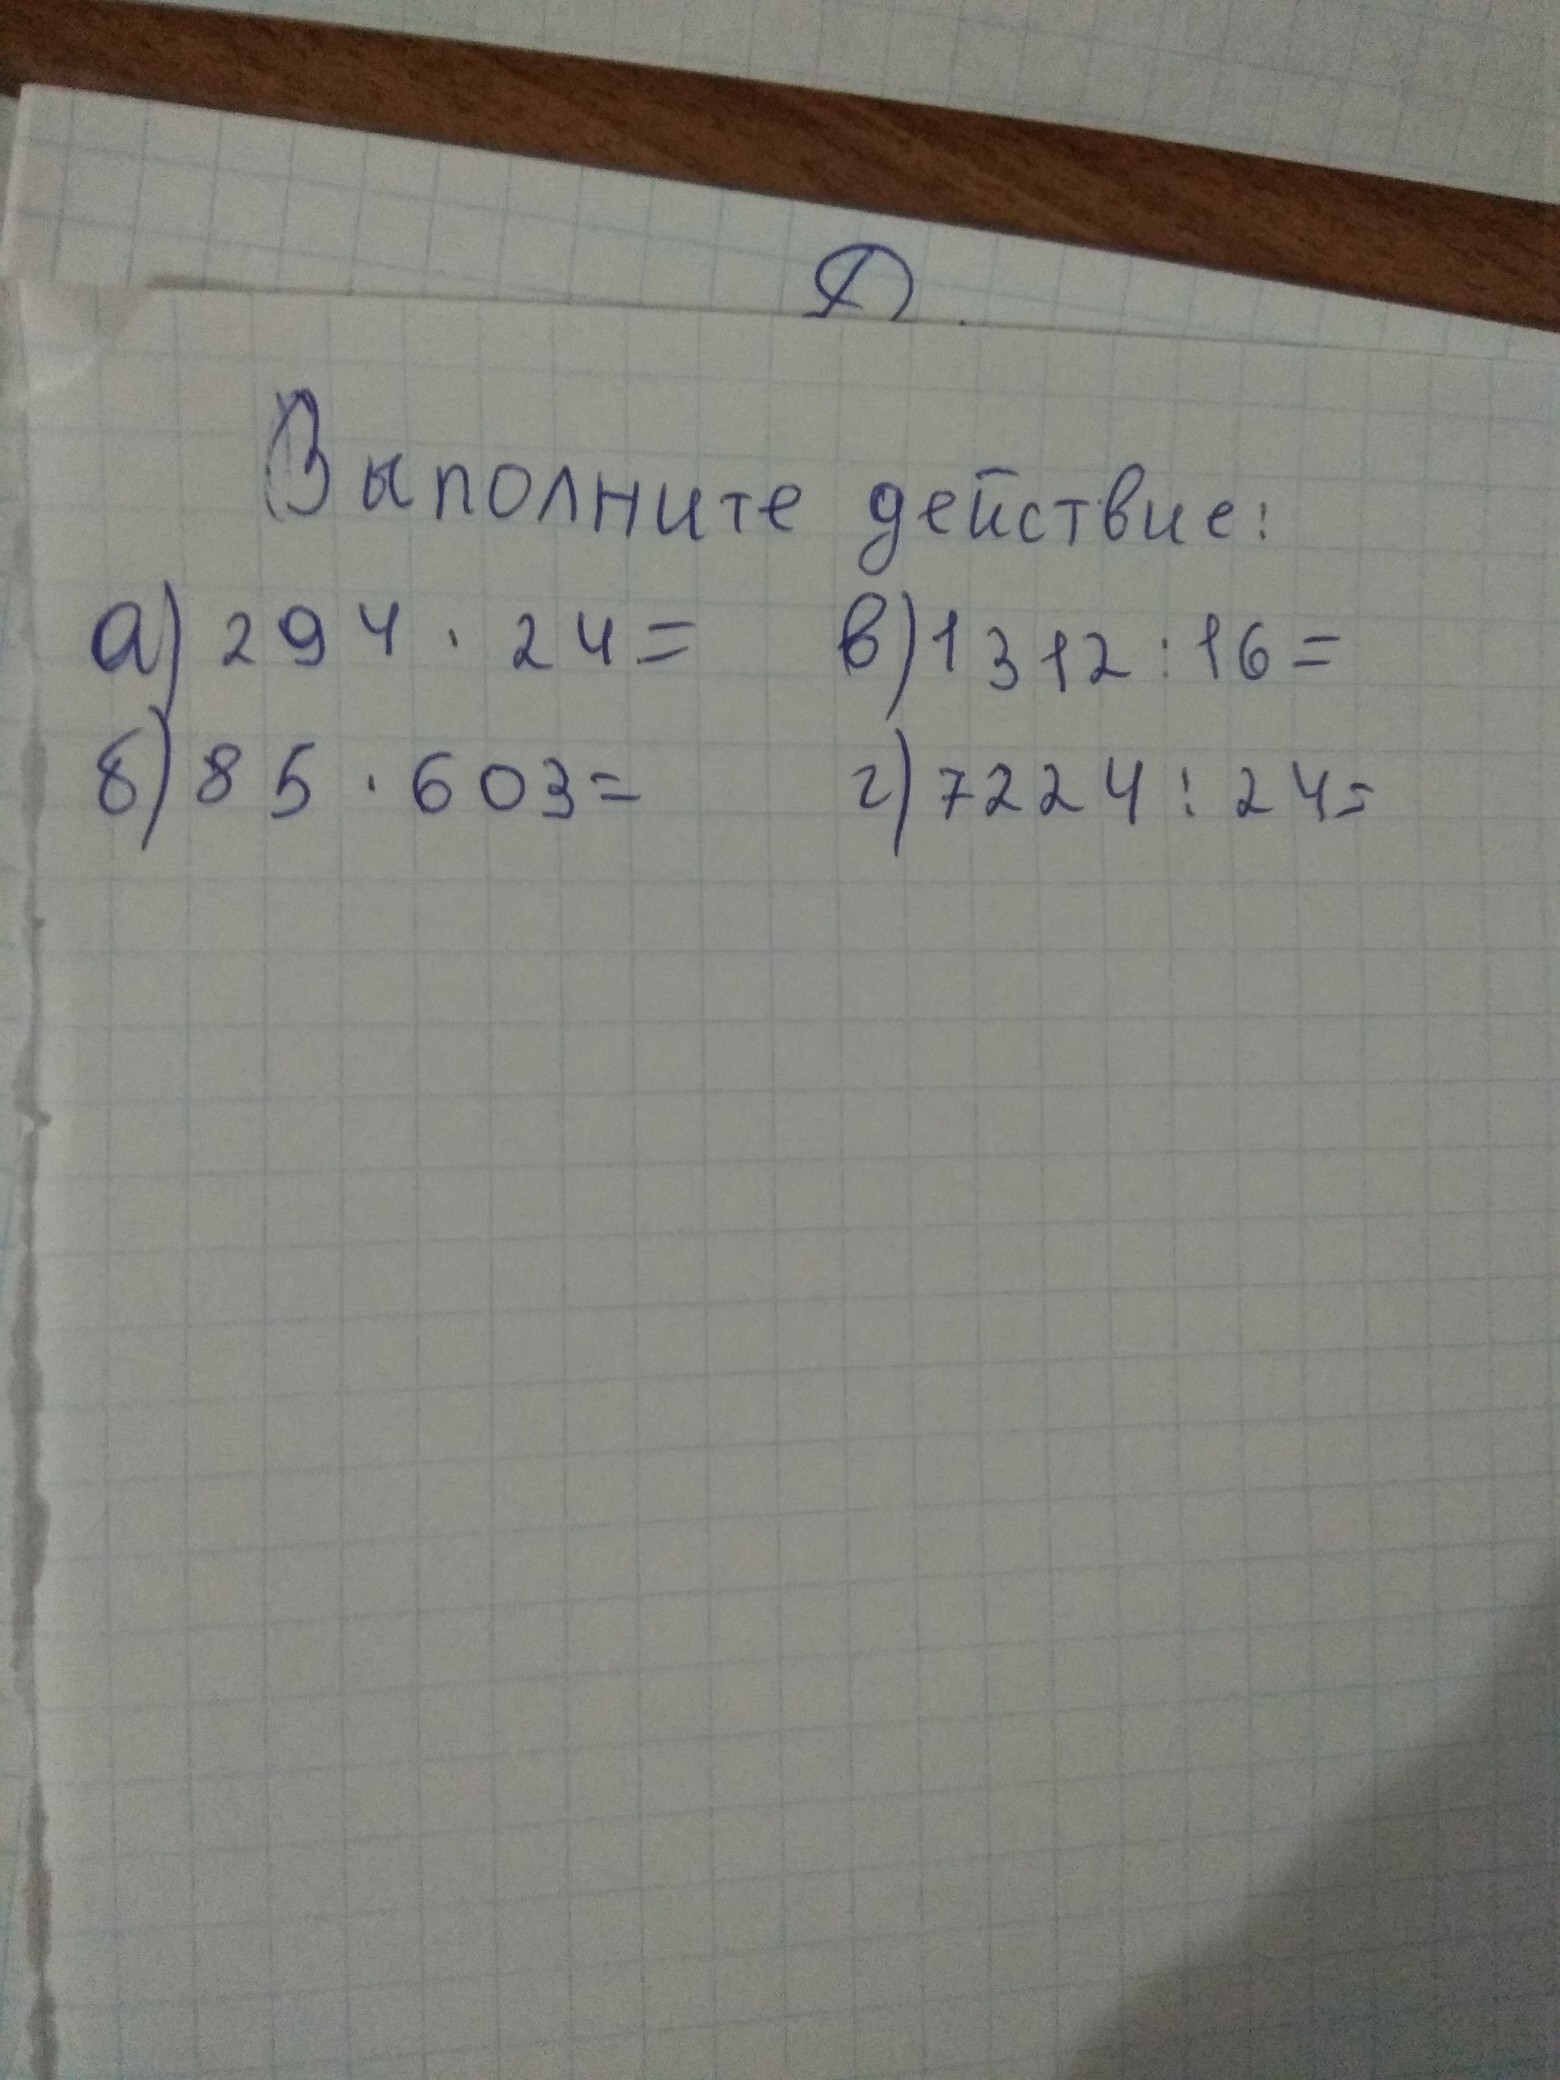 Выполните действие:
а) 294 · 24 = в) 1312 : 16 =
б) 85 · 603 = г) 7224 : 24 =